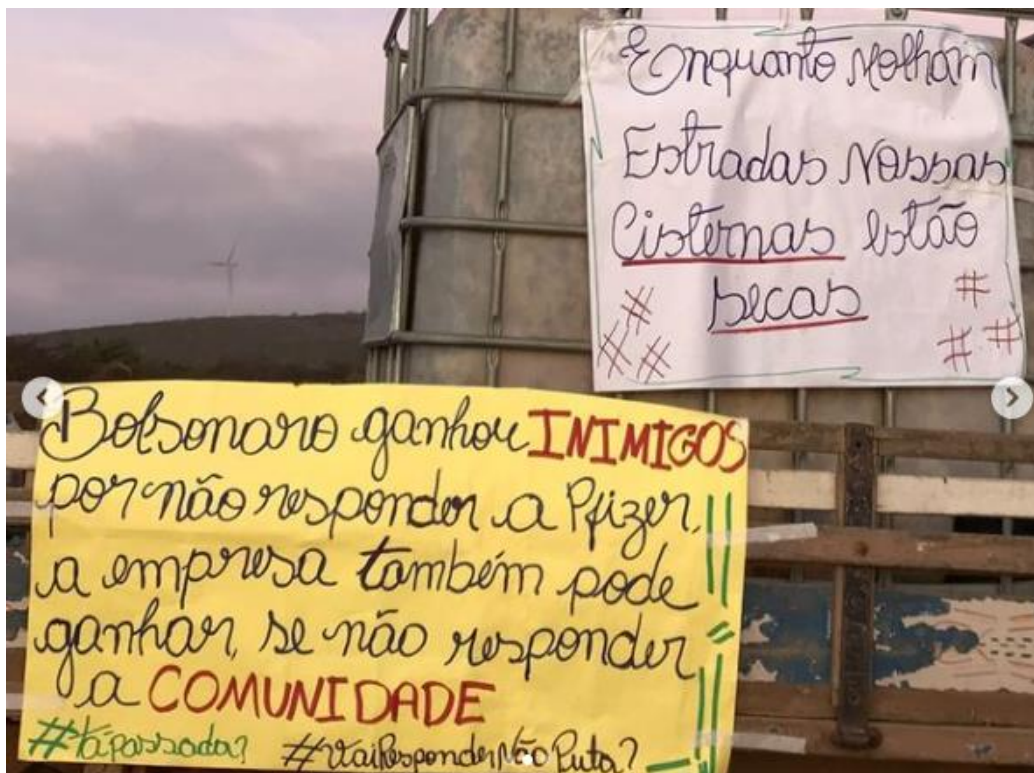 Enquanto Molham
Estradas Nossas
Cisternas estão
secas
Bolsonaro ganhou INIMIGOS
por não responder a Pfizer,
a empresa também pode
ganhar, se não responder
a COMUNIDADE
#Tápassada? #VaiResponderNãoPuta?